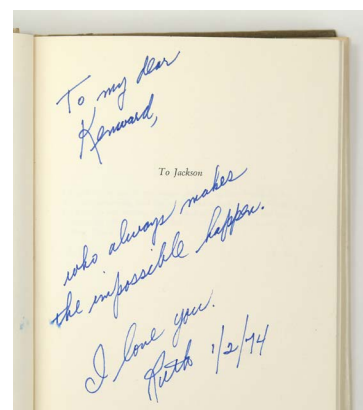 To my dear
Kenward,
To Jackson
who always makes
the impossible happen.
I love you.
Ruth 1/2/74